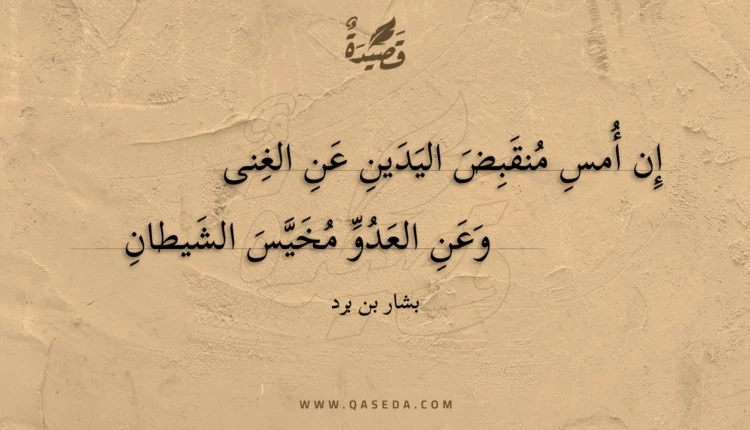 قَصِيدَةٌ
إِن أُمسِ مُنقَبِضَ اليَدَينِ عَنِ الغِنى
وَعَنِ العَدُوِّ مُخَيَّسَ الشَيطانِ
بشار بن برد
WWW.QASEDA.COM